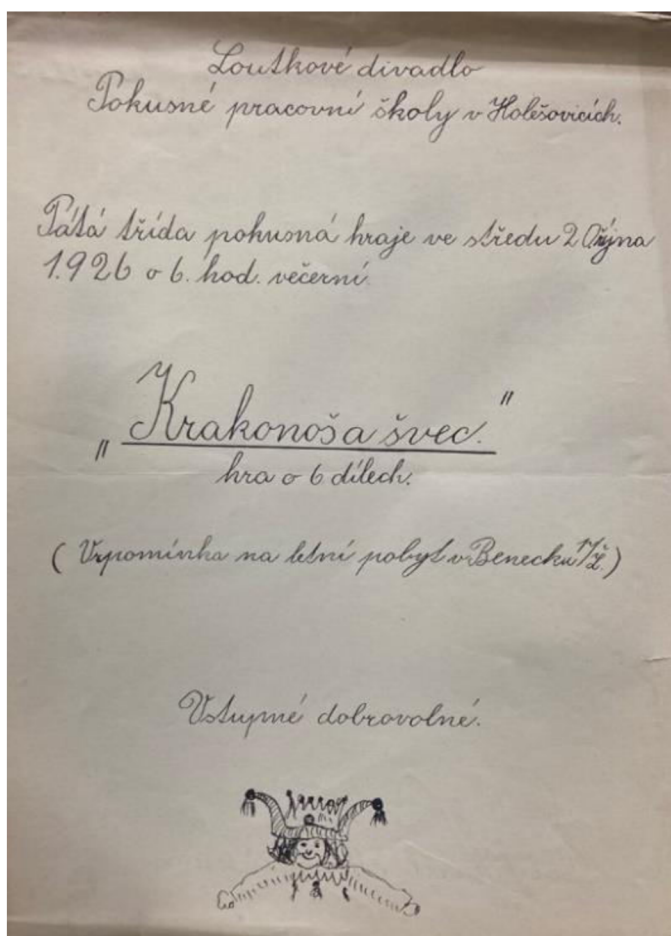 Loutkové divadlo
Pokusné pracovní školy v Holešovicích.
Pátá třída pokusná hraje ve středu 20 října
1.926 o 6. hod. večerní.
„Krakonoš a švec."
hra o 6 dílech.
(Vzpomínka na letní pobyt v Benecku)
Vstupné dobrovolné.